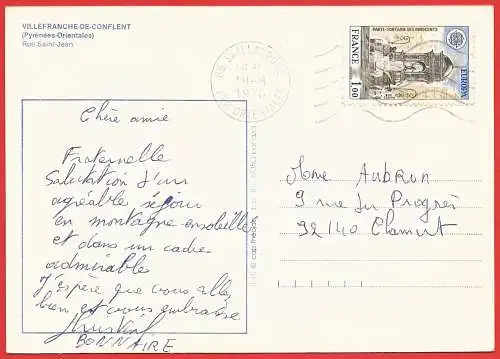 VILLEFRANCHE-DE-CONFLENT
(Pyrénées-Orientales)
Rue Saint-Jean
PARIS-FONTAINE DES INNOCENTS
FRANCE
1,00
EUROPA
1978
Chère amie
Fraternelle
Salutation d'un
agréable séjour
en montagne ensoleillée
et dans un cadre
admirable
J'espère que vous allez
bien et vous embrasse
BONNAIRE
Mme AUBRUN
9 rue du Progrès
92140 Clamart